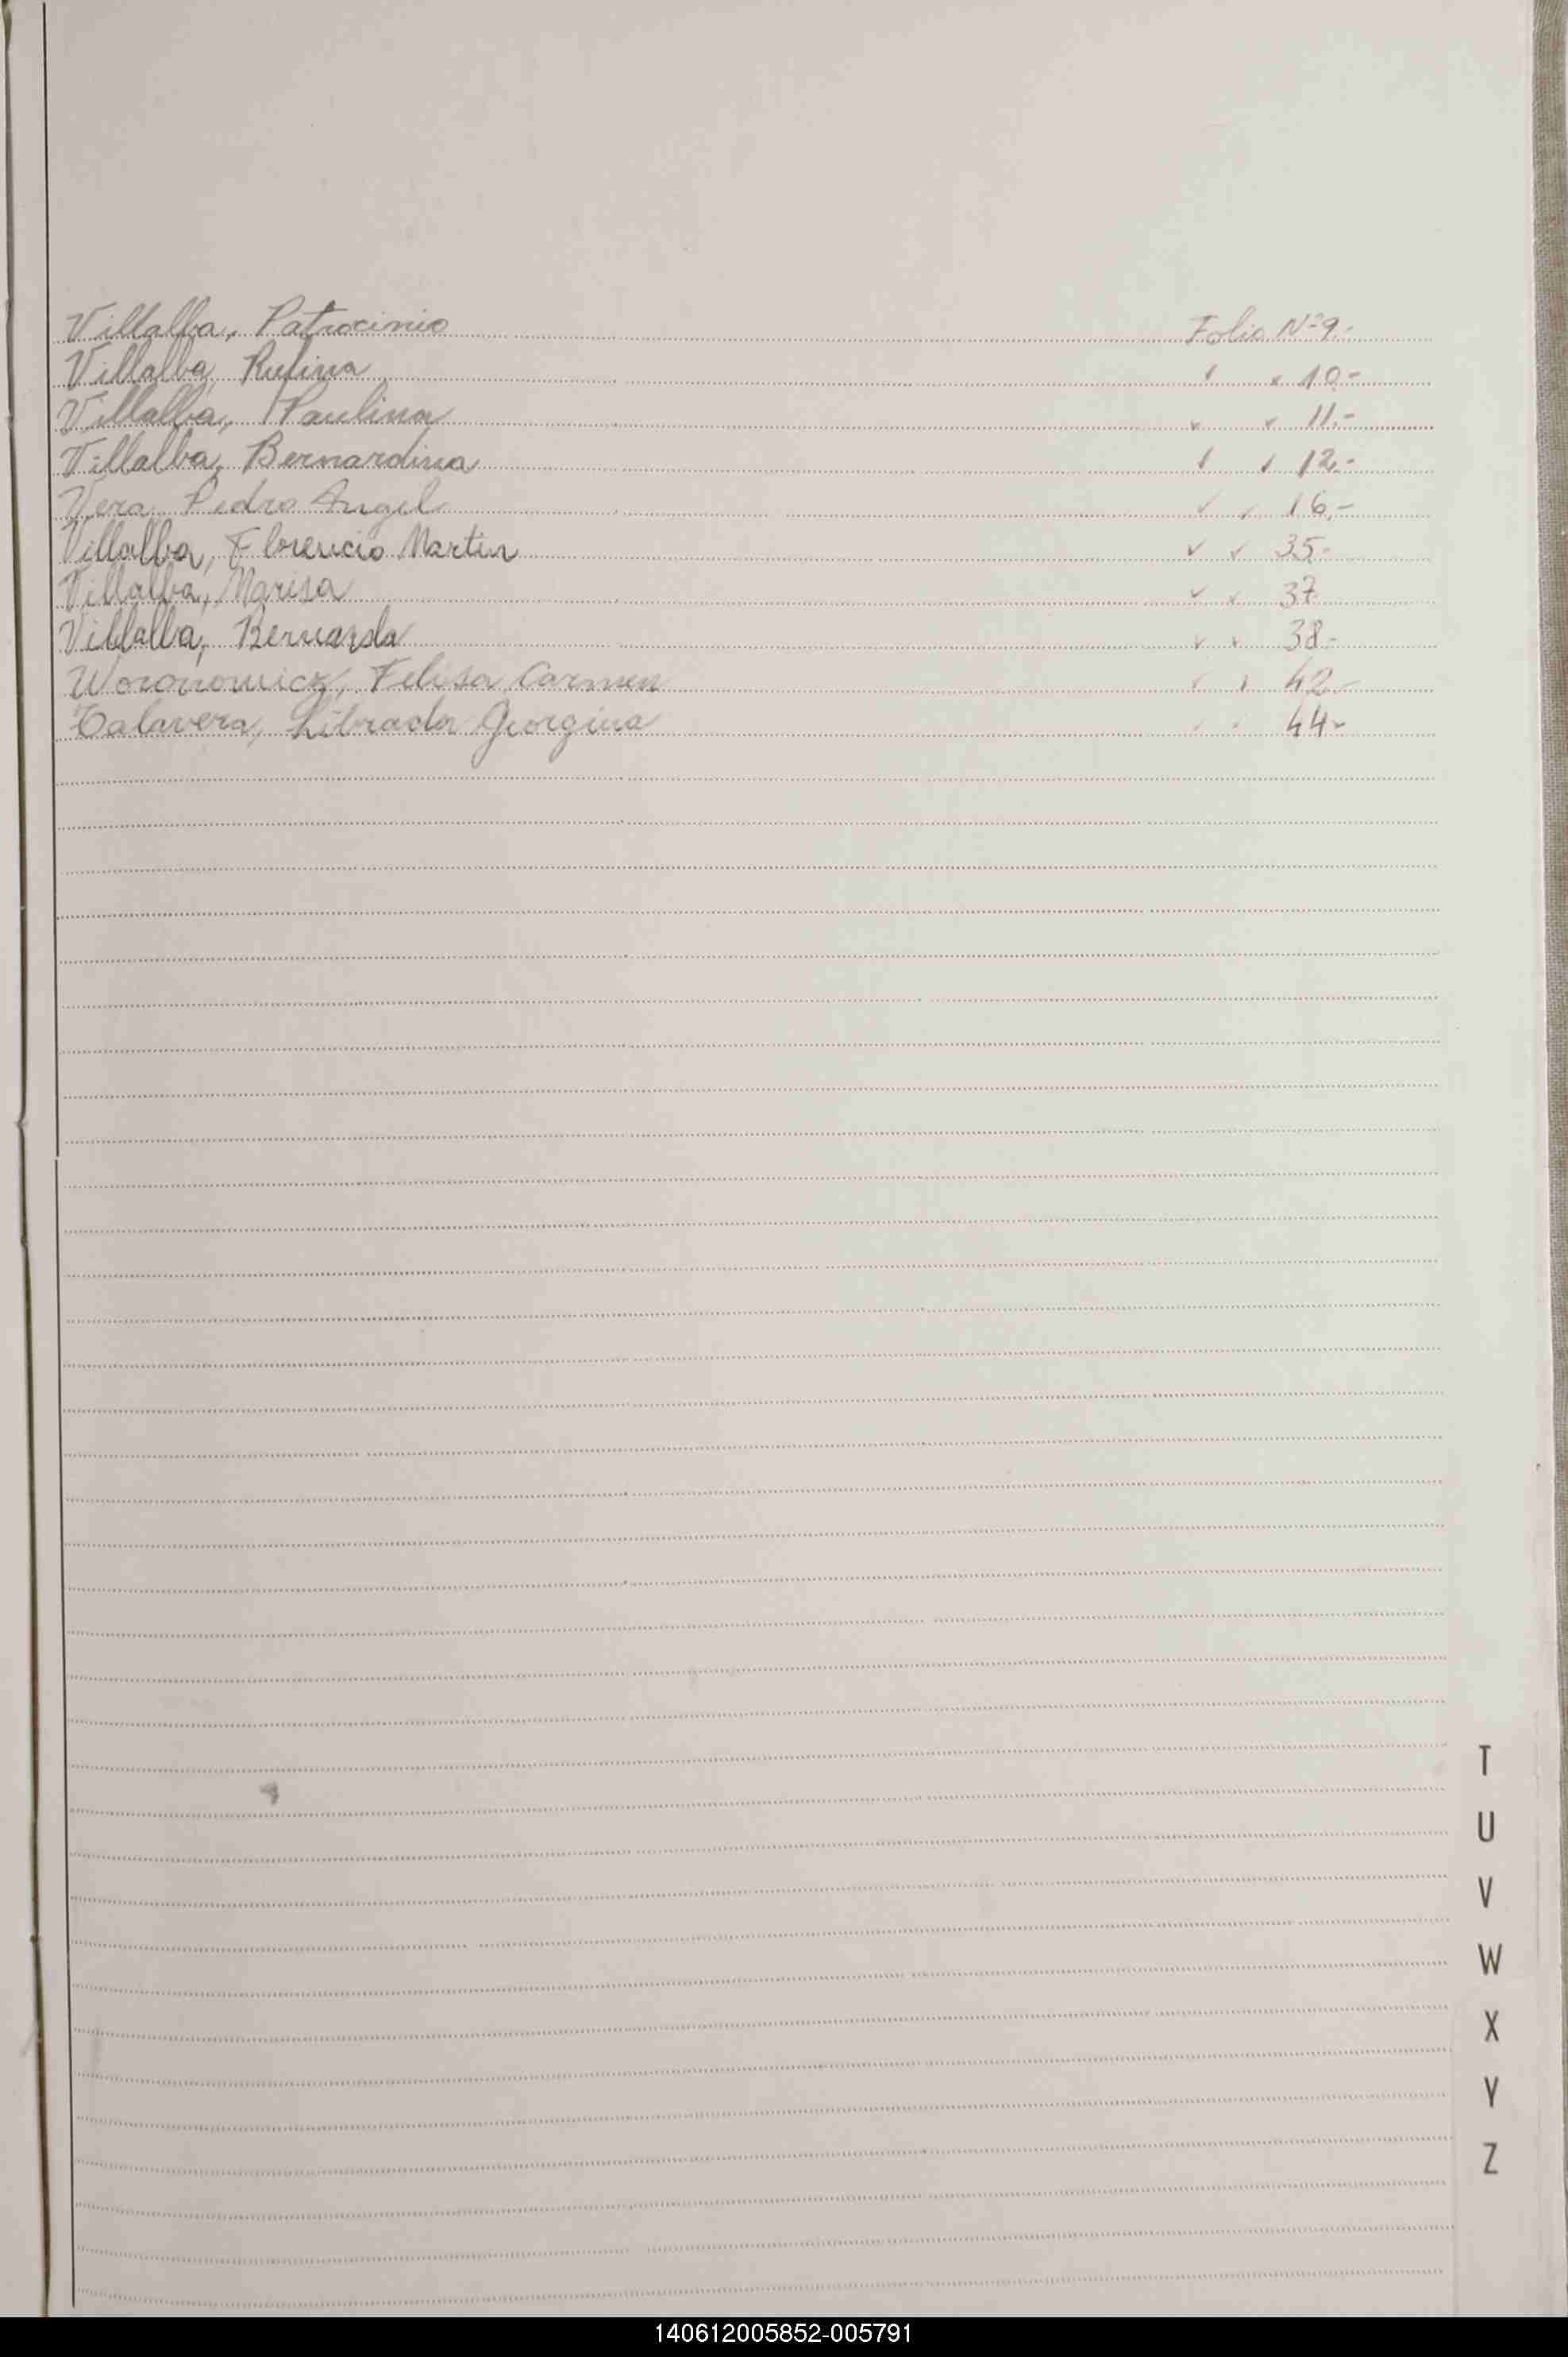 Villalba, Patrocinio Folio Nº 9.-
Villalba, Rufina " " 10.-
Villalba, Paulina " " 11.-
Villalba, Bernardina " " 12.-
Vera, Pedro Angel " " 16.-
Villalba, Florencio Martin " " 35.-
Villalba, Marisa " " 37.
Villalba, Bernarda " " 38-
Woronowicz, Felisa Carmen " " 42.-
Talavera, Librada Georgina " " 44-
T
U
V
W
X
Y
Z
140612005852-005791